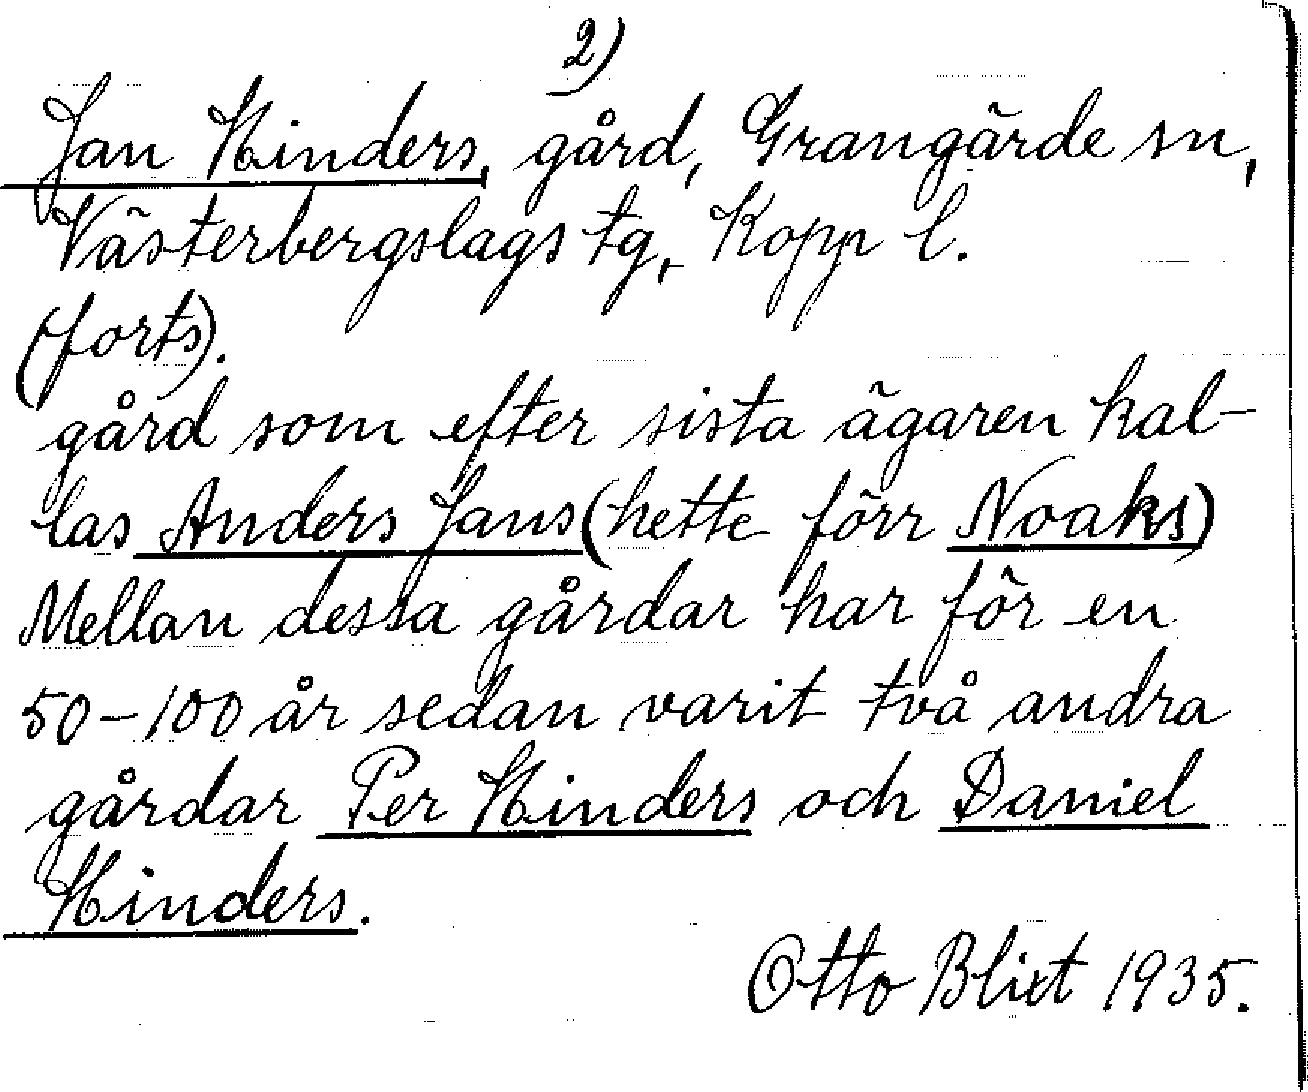 2)
Jan Hinders, gård, Grangärde sn,
Västerbergslags tg, Kopp l.
(forts).
gård som efter sista ägaren kal-
las Anders Jans (hette förr Noaks)
Mellan dessa gårdar har för en
50-100 år sedan varit två andra
gårdar Per Hinders och Daniel
Hinders.
Otto Blixt 1935.